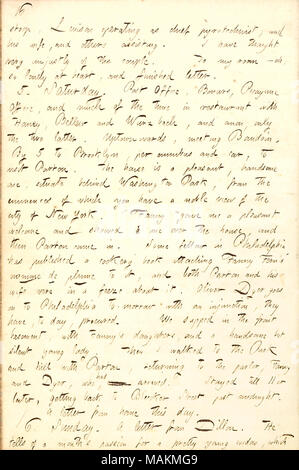 16
stoop, Levison operating as chief pyrotechnist, and
his wife, and others assisting. I have thought
very unjustly of the couple. To my room oh,
so lonely at heart, and finished letter.
5. Saturday. Post Office, "Bowers, Picayune
Office, and much of the time in restaurant with
Haney, Bellew and Watchen, and anon only
the two latter. Uptownwards, meeting Banton.
By 5 to Brooklyn, per omnibus and car, to
visit Parton. The house is a pleasant, handsome
one, situate behind Washington Park, from the
eminences of which you have a noble view of the
city of New York. "Fanny" gave me a pleasant
welcome and showed me over the house, and
then Parton came in. Some fellow in Philadelphia
has published a cookery book attaching Fanny Fern's
nomme de plume to it, and both Parton and his
wife were in a freeze about it. Oliver Dyer goes
on to Philadelphia to-morrow with an injunction they
have, to day, procured. We supped in the front
basement, with Fanny's daughters and a handsome but
silent young lady. Then walked to the Park
and back with Parton, returning to the parlor, Fanny
and Dyer, who had arrived. Stayed till 11 or
later, getting back to Bleecker Street past midnight.
A letter from home this day.
6. Sunday. A letter from Dillon. He
tells of a month's passion for a pretty young widow, which
alamy
Image ID: MAKMG9
www.alamy.com